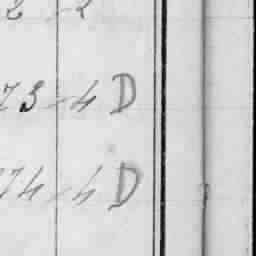 2 2
73-4 D
74-4 D